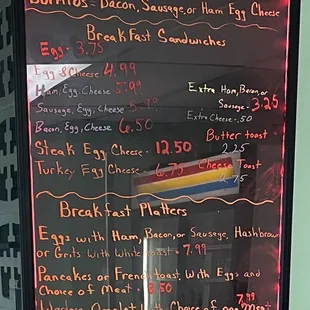 Burritos = Bacon, Sausage, or Ham Egg Cheese
Breakfast Sandwiches
Egg - 3.75
Egg & Cheese 4.99
Ham, Egg, Cheese 5.99
Extra Ham, Bacon, or
Sausage, Egg, Cheese
Sausage - 3.25
Extra Cheese - .50
Bacon, Egg, Cheese 6.50
Butter toast -
2.25
Steak Egg Cheese - 12.50
Turkey Egg Cheese - 6.75
Cheese Toast
2.75
Breakfast Platters
Eggs with Ham, Bacon, or Sausage, Hashbrow
or Grits With White toast - 7.99
Pancakes or French toast With Eggs and
Choice of Meat - 8.50
7.99
Omelet with Choice of one Meat